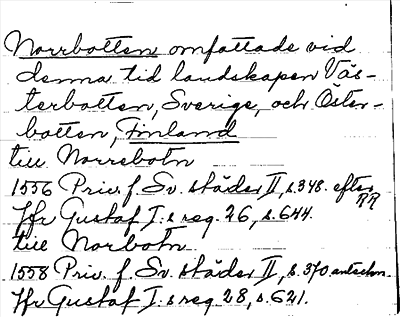 Norrbotten omfattade vid
denna tid landskapen Väs-
terbotten, Sverige, och Öster-
botten, Finland
till Norrebotn
1556 Priv. f. Sv. städer II, s. 348. efter RR
Jfr Gustaf I:s reg. 26, s. 644.
till Norbotn
1558 Priv. f. Sv. städer II, s. 370 antechn.
Jfr Gustaf I:s reg 28, s. 621.